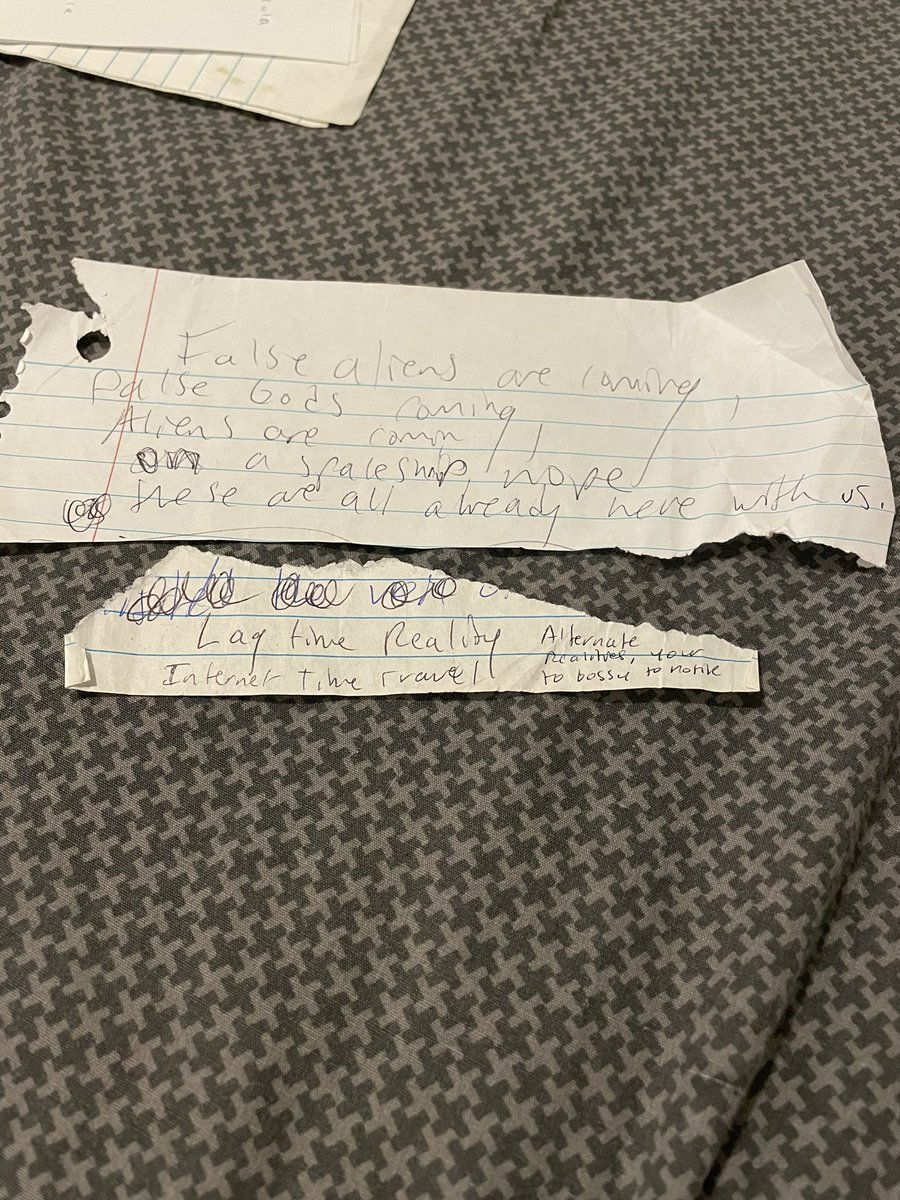 False aliens are coming,
False Gods coming,
Aliens are comin,
on a spaceship, nope
these are all already here with us.
Lag time Reality
Internet Time Travel
Alternate
Realities, your
to bossy to notice